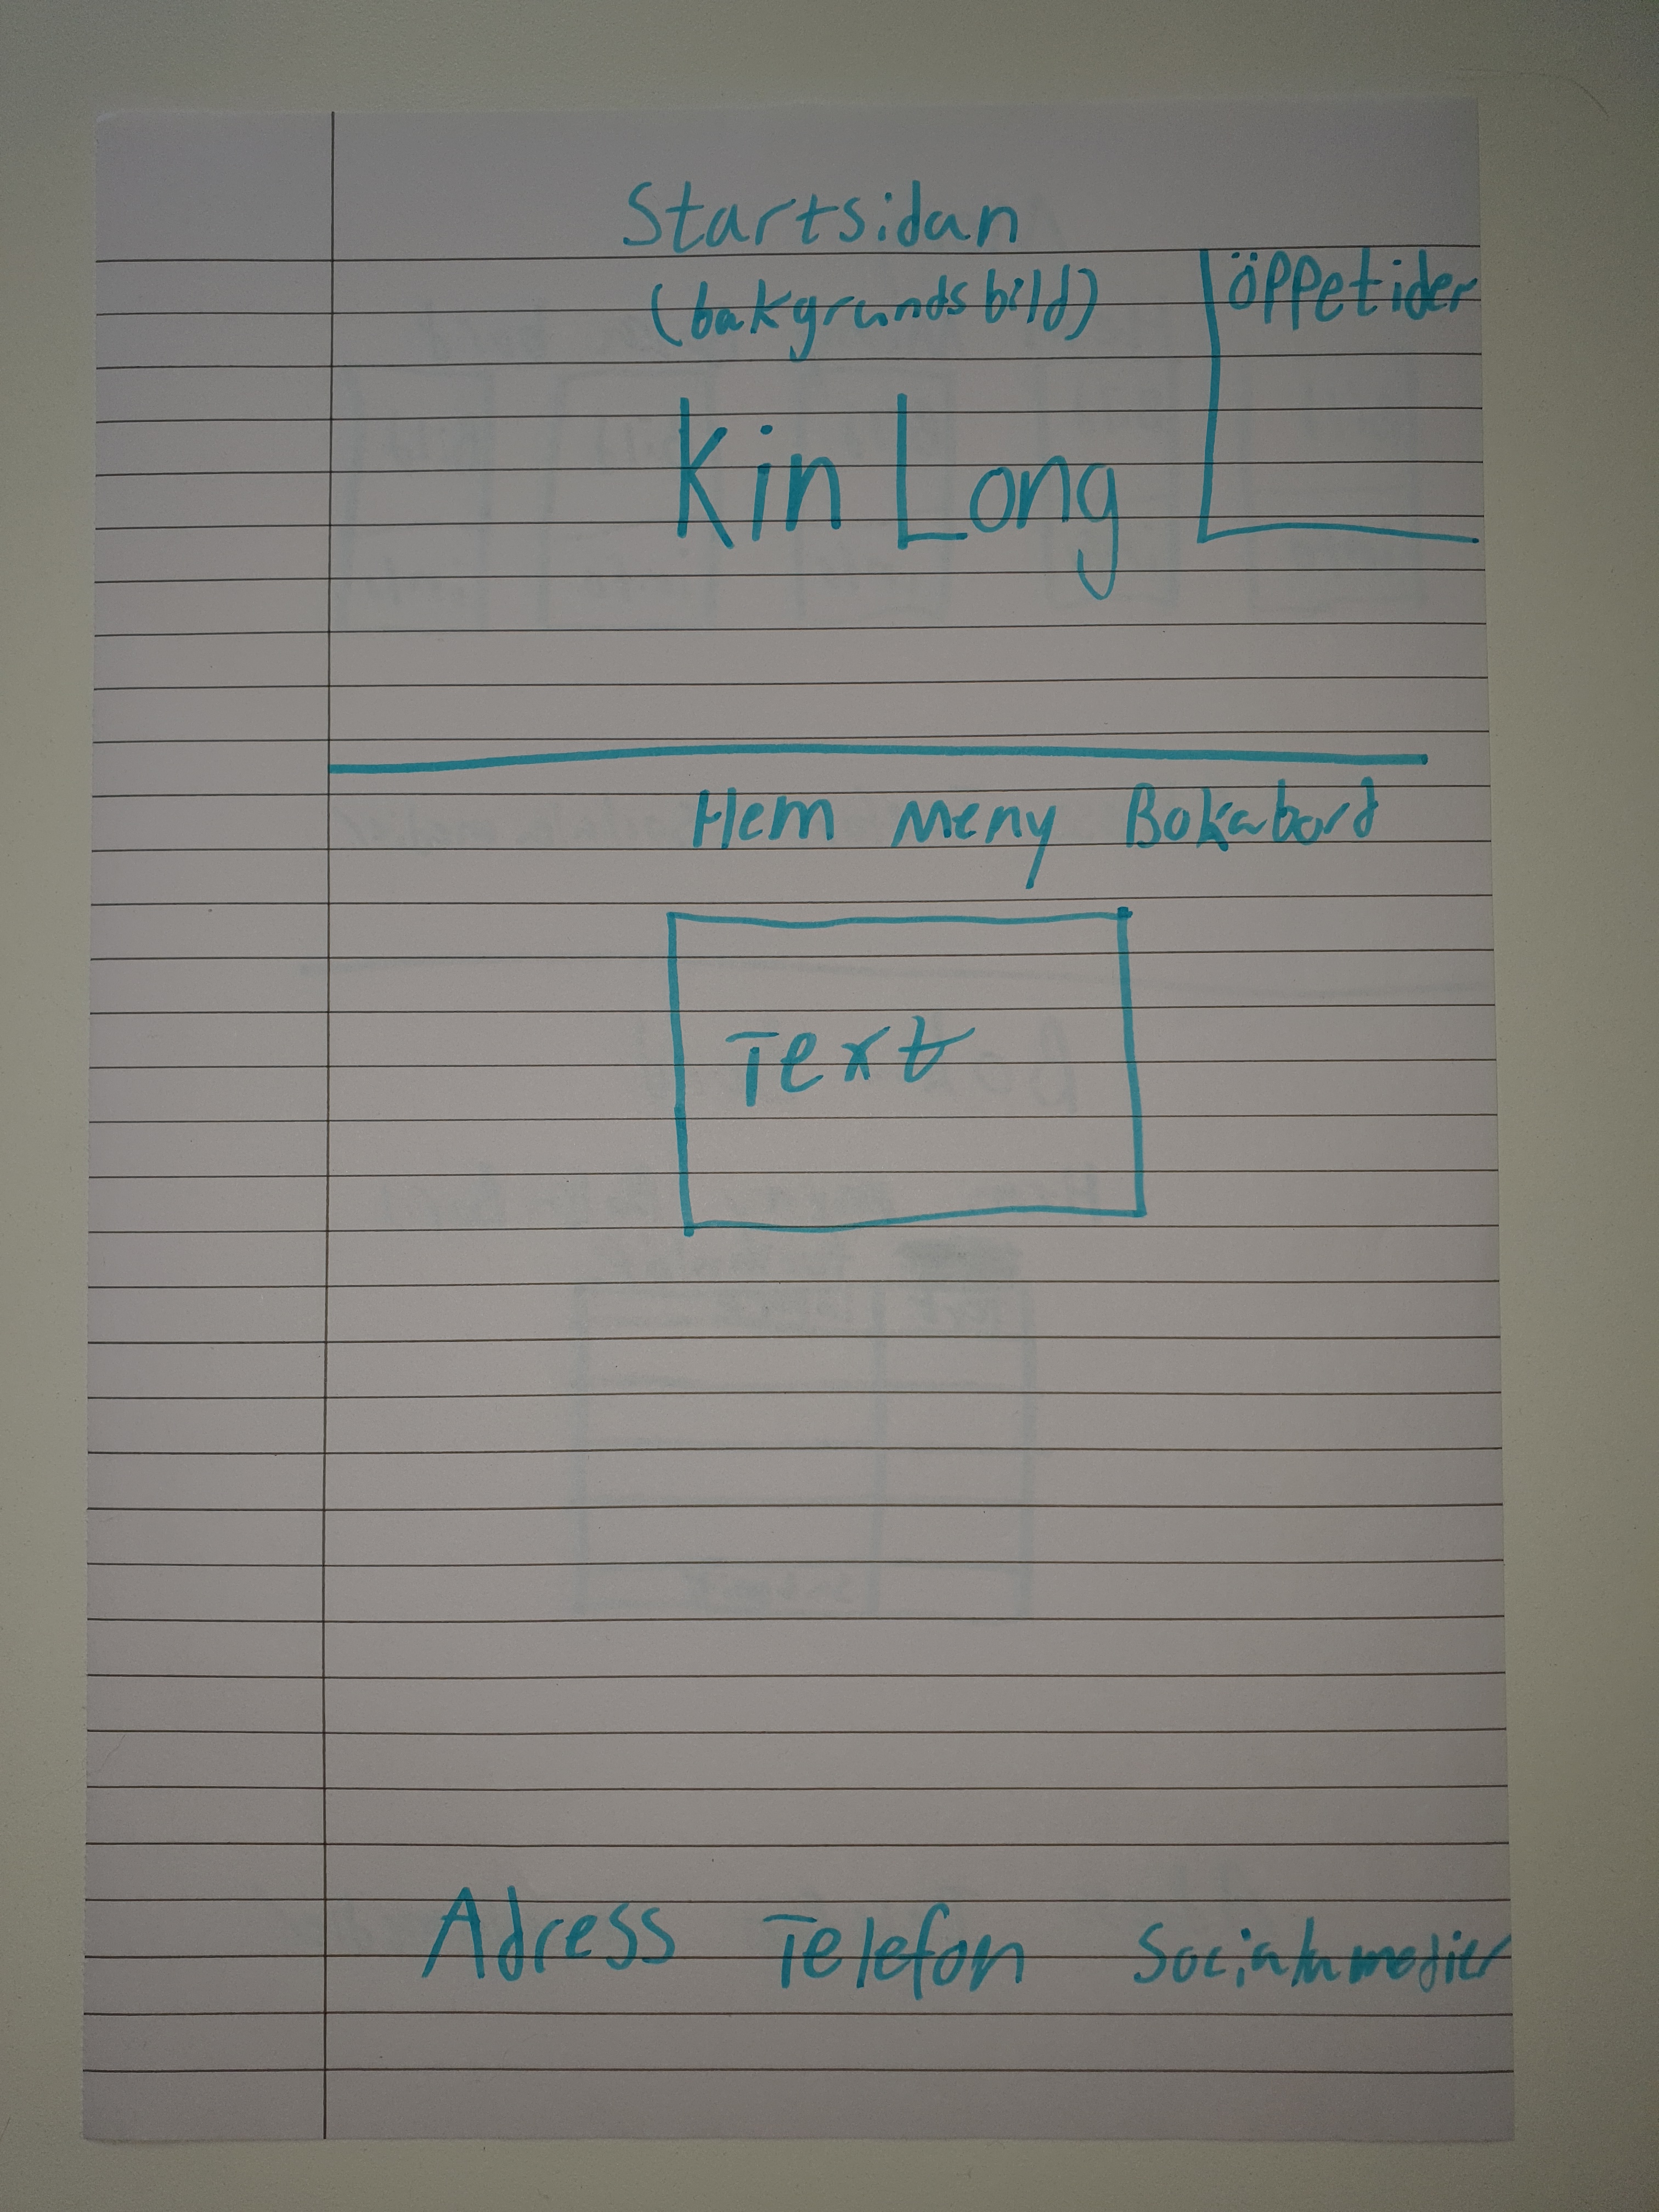 Startsidan
(bakgrundsbild)
öppetider
Kin Long
Hem Meny Boka bord
Text
Adress Telefon Sociala medier